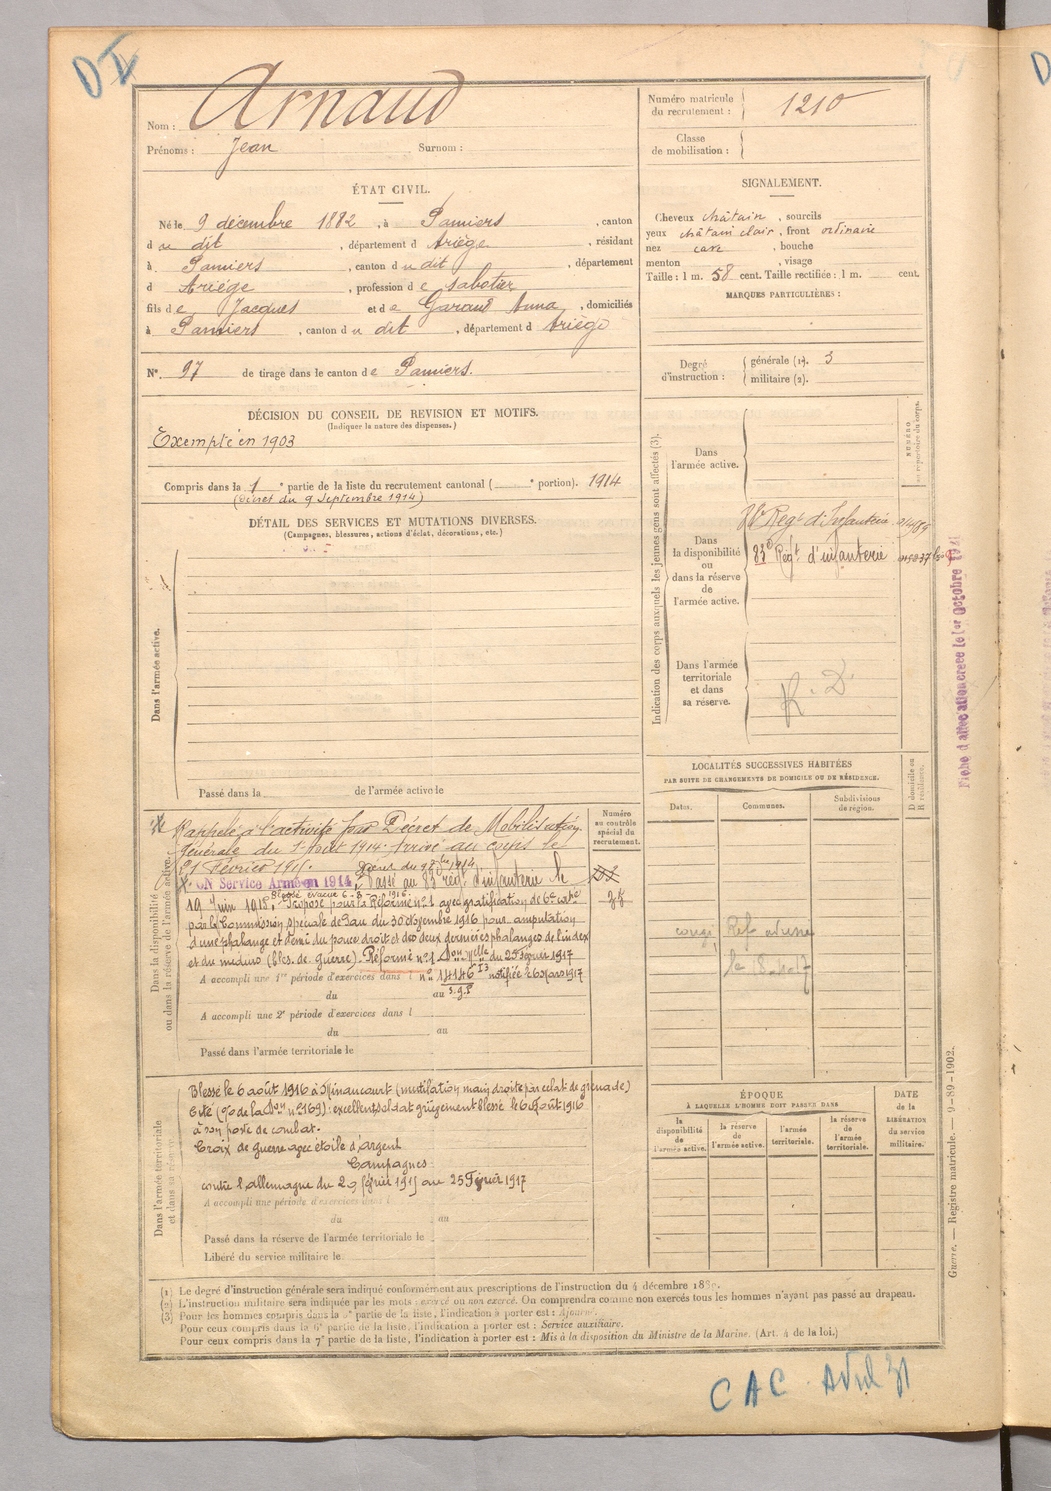 Nom : Arnaud
Prénoms : Jean Surnom :
Numéro matricule du recrutement : 1210
Classe de mobilisation :
ÉTAT CIVIL.
Né le 9 décembre 1882, à Pamiers, canton
du dit, département d Ariège, résidant
à Pamiers, canton du dit, département
d Ariège, profession de sabotier
fils de Jacques et de Garaud Anna, domiciliés
à Pamiers, canton du dit, département d Ariège
N° 97 de tirage dans le canton de Pamiers.
SIGNALEMENT.
Cheveux châtain, sourcils
yeux châtain clair, front ordinaire
nez cave, bouche
menton , visage
Taille : 1 m. 58 cent. Taille rectifiée : 1 m. cent.
MARQUES PARTICULIÈRES :
Degré d'instruction : générale (1). 3
militaire (2).
DÉCISION DU CONSEIL DE REVISION ET MOTIFS.
(Indiquer la nature des dispenses.)
Exempté en 1903
Compris dans la 1e partie de la liste du recrutement cantonal ( e portion). 1914
(Décret du 9 Septembre 1914)
DÉTAIL DES SERVICES ET MUTATIONS DIVERSES.
(Campagnes, blessures, actions d'éclat, décorations, etc.)
Dans l'armée active.
Passé dans la de l'armée active le
Indication des corps auxquels les jeunes gens sont affectés (3).
NUMÉRO au répertoire du corps.
Dans l'armée active.
Dans la disponibilité ou dans la réserve de l'armée active.
Régt d'Infanterie
83e Régt d'infanterie
Dans l'armée territoriale et dans sa réserve.
R. D.
Fiche d'affectation créée le 1er Octobre 1921
Dans la disponibilité ou dans la réserve de l'armée active.
Rappelé à l'activité par Décret de Mobilisation
Générale du 1er Août 1914. Arrivé au corps le
21 Février 1915. Décret du
BON Service Armé en 1914, Passé au 83e rég. d'infanterie le
Blessé évacué 6-8-1916.
19 Juin 1915. Proposé pour la Réforme n°1 avec gratification de 6e catie
par la Commission spéciale de Pau du 30 Novembre 1916 pour amputation
d'une phalange et demi du pouce droit et des deux dernières phalanges de l'index
et du médius (bles. de guerre). Réformé n°1 Don Melle du 25 Février 1917
A accompli une 1re période d'exercices dans l n° 14146 I3 notifiée le 6 Mars 1917
du au S.G.P
A accompli une 2e période d'exercices dans l
du au
Passé dans l'armée territoriale le
Numéro au contrôle spécial du recrutement.
LOCALITÉS SUCCESSIVES HABITÉES
PAR SUITE DE CHANGEMENTS DE DOMICILE OU DE RÉSIDENCE.
Dates. Communes. Subdivisions de région. D domicile ou R résidence.
Dans l'armée territoriale et dans sa réserve.
Blessé le 6 août 1916 à Minaucourt (mutilation main droite par éclat de grenade)
Cité (O/ de la Don n° 2169) : excellent soldat grièvement blessé le 6 Août 1916
à son poste de combat.
Croix de guerre avec étoile d'argent
Campagnes :
contre l'Allemagne du 20 février 1915 au 25 Février 1917
A accompli une période d'exercices dans l
du au
Passé dans la réserve de l'armée territoriale le
Libéré du service militaire le
ÉPOQUE
A LAQUELLE L'HOMME DOIT PASSER DANS
la disponibilité de l'armée active.
la réserve de l'armée active.
l'armée territoriale.
la réserve de l'armée territoriale.
DATE de la LIBÉRATION du service militaire.
(1) Le degré d'instruction générale sera indiqué conformément aux prescriptions de l'instruction du 4 décembre 1889.
(2) L'instruction militaire sera indiquée par les mots : exercé ou non exercé. On comprendra comme non exercés tous les hommes n'ayant pas passé au drapeau.
(3) Pour les hommes compris dans la 5e partie de la liste, l'indication à porter est : Ajourné.
Pour ceux compris dans la 6e partie de la liste, l'indication à porter est : Service auxiliaire.
Pour ceux compris dans la 7e partie de la liste, l'indication à porter est : Mis à la disposition du Ministre de la Marine. (Art. 4 de la loi.)
Guerre. — Registre matricule. — 9-89-1902.
CAC Avril 31